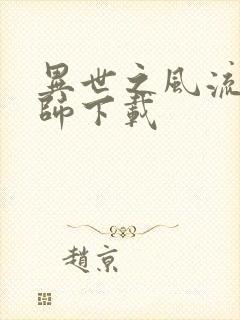 異世之風流
師下載
趙京